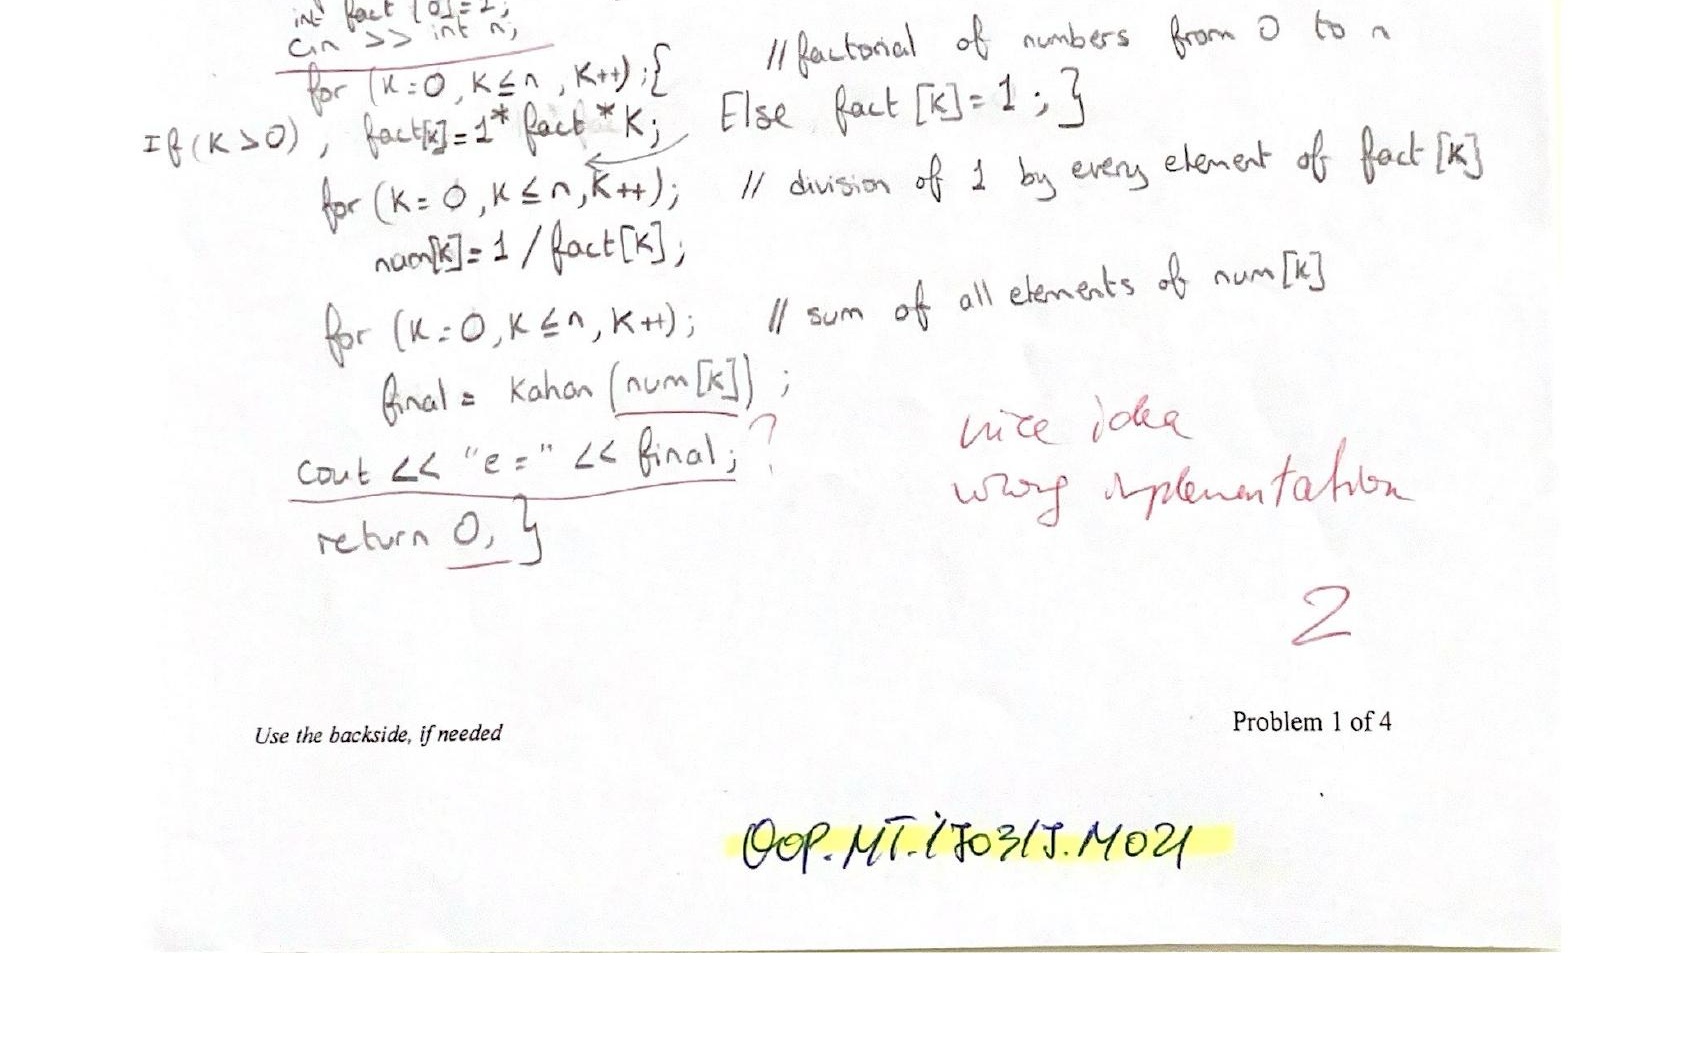 int fact [0]=1;
cin >> int n;
for (K=0, K≤n, K++);{ // factorial of numbers from 0 to n
If (K>0), fact[K]=1* fact *K; Else fact [K]=1; }
for (K=0, K≤n, K++); // division of 1 by every element of fact [K]
num[K]=1 / fact[K];
for (K=0, K≤n, K++); // sum of all elements of num[K]
final = Kahan (num[K]) ;
?
cout << "e=" << final;
return 0, }
nice idea
wrong implementation
2
Use the backside, if needed
Problem 1 of 4